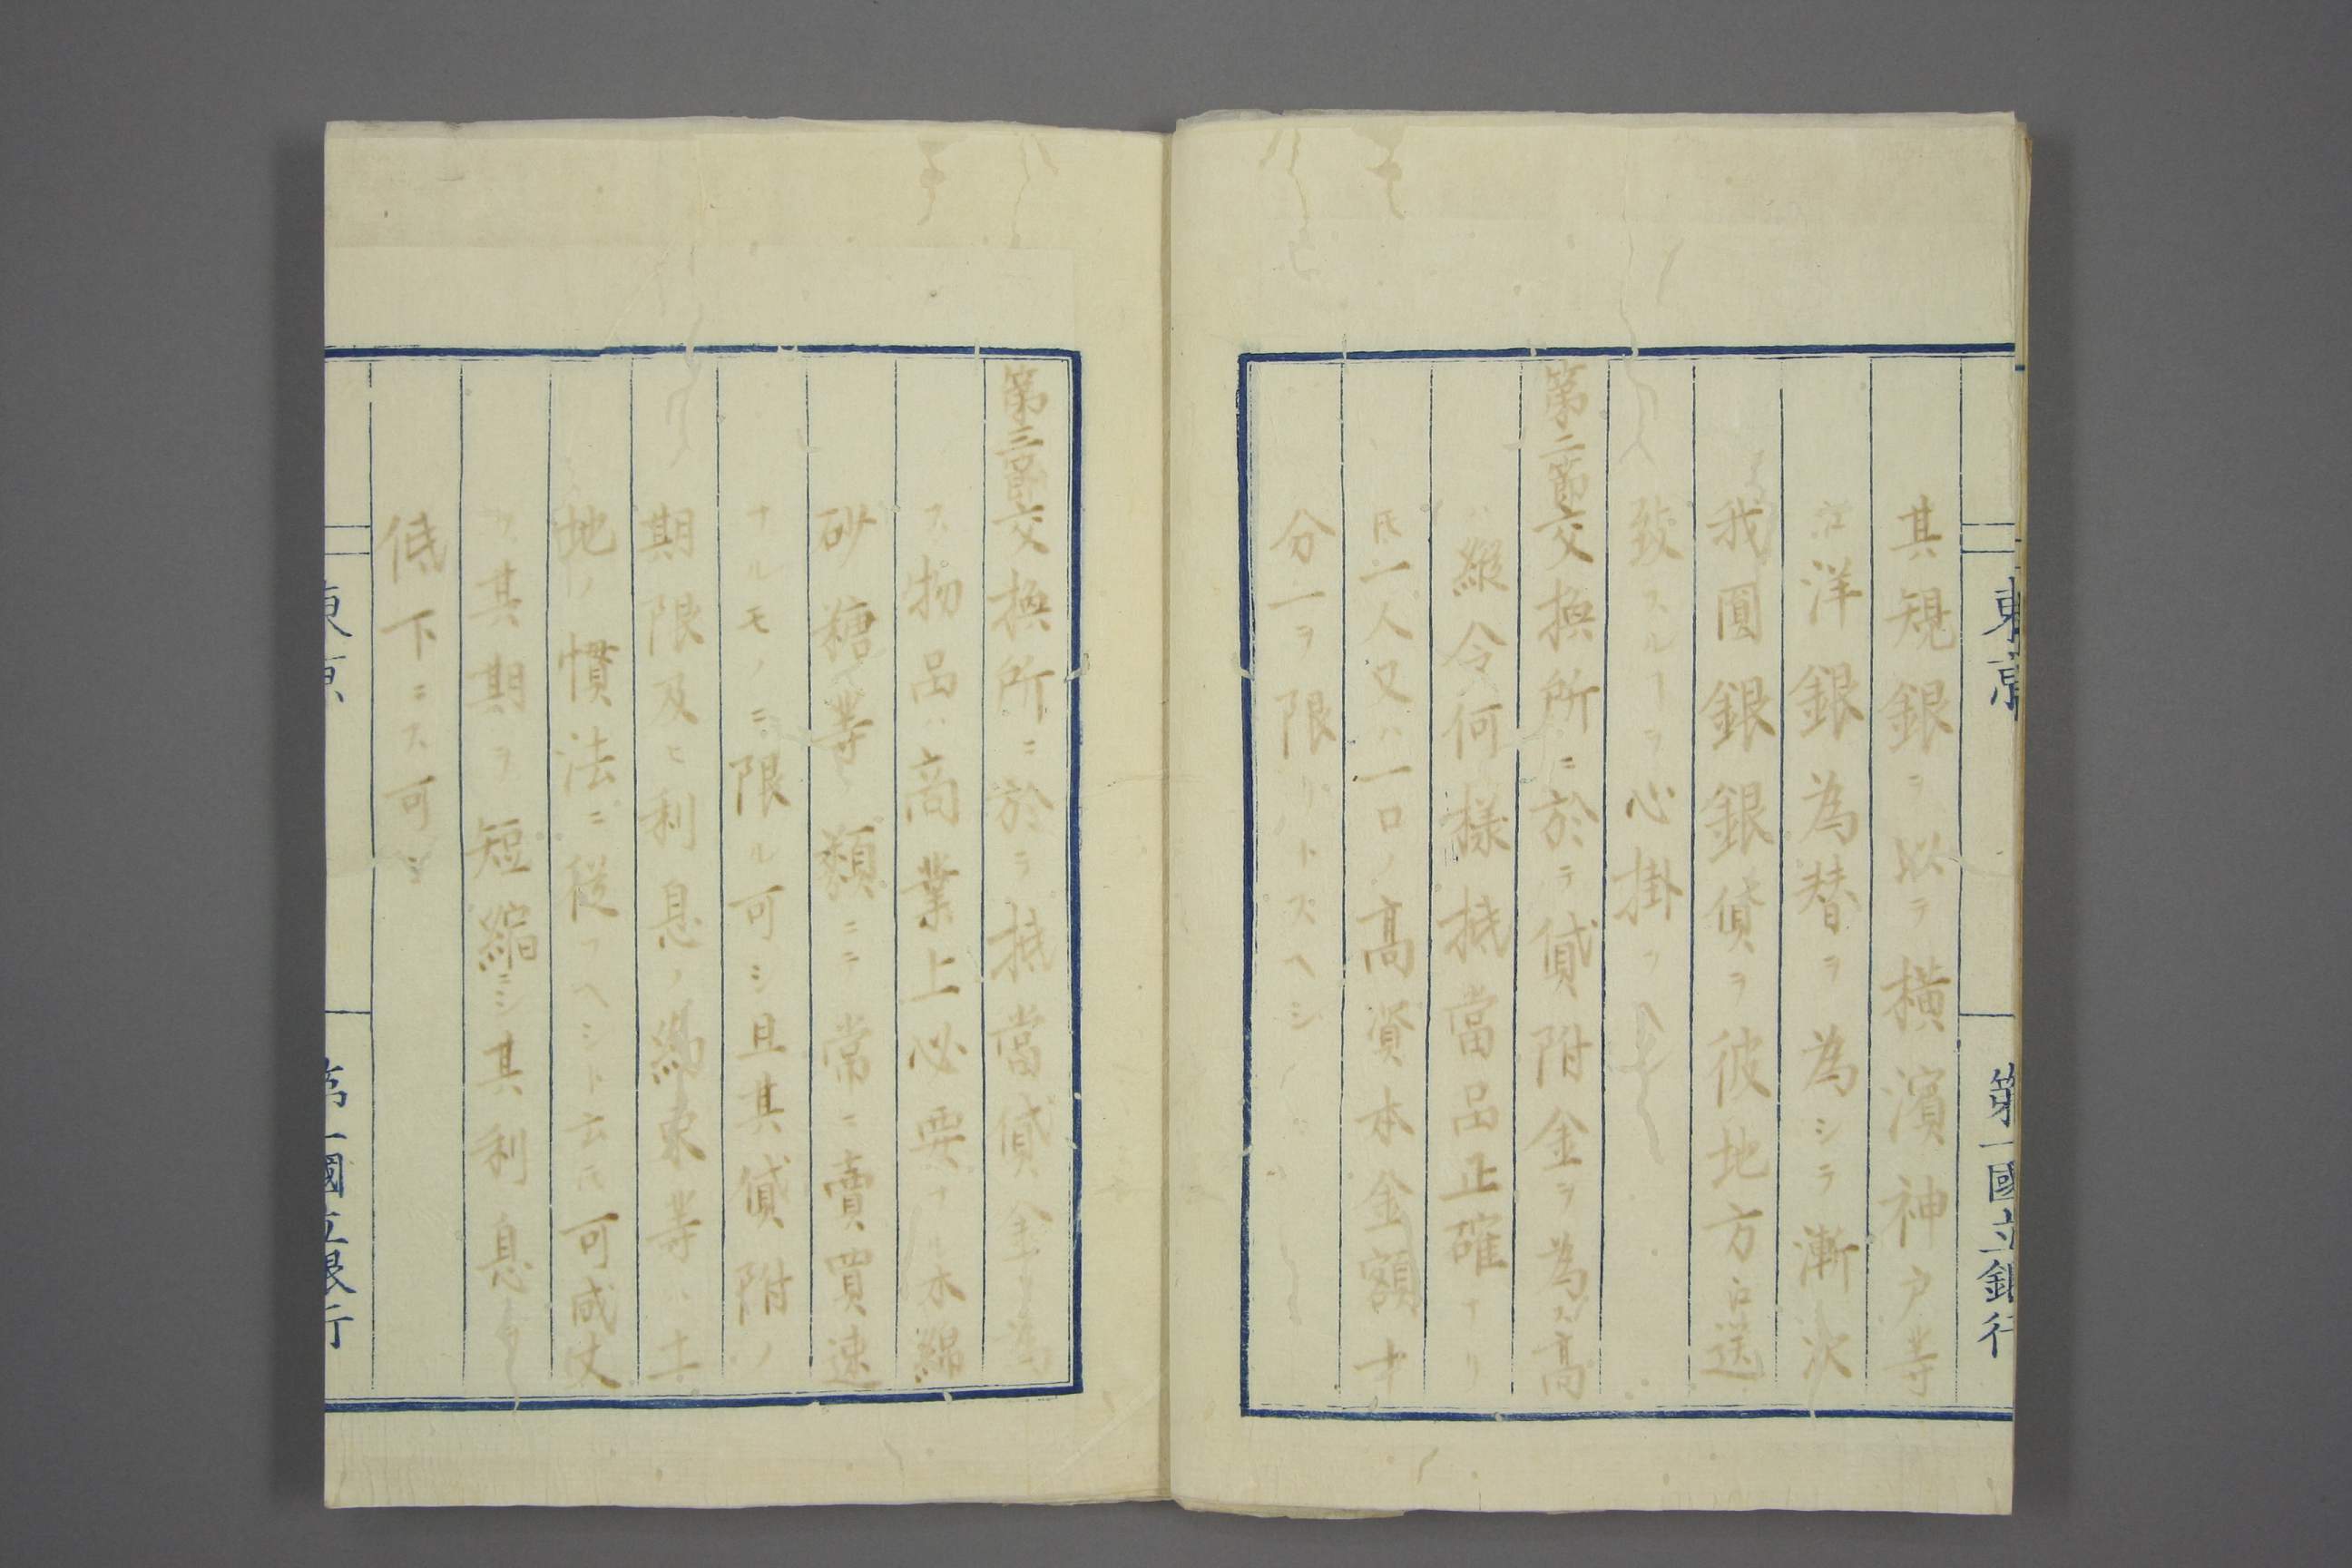 東京 第一國立銀行
其規銀ヲ以テ橫濱神戸等
江洋銀為替ヲ為シテ漸次
我圓銀銀貨ヲ彼地方江送
致スルヿヲ心掛ク
第二節交換所ニ於テ貸附金ヲ為ス高
ハ縦令何樣抵當品正確ナリ
氏一人又ハ一口ノ高資本金額十
分一ヲ限リトスヘシ
第三節交換所ニ於テ抵當貸金ヲ為
ス物品ハ商業上必要ナル木綿
砂糖等ノ類ニテ常ニ賣買速
ナルモノニ限ル可シ且其貸附ノ
期限及ヒ利息ノ約束等ハ土
地ノ慣法ニ從フヘシト云氏可成丈
ケ其期ヲ短縮シ其利息
低下ニス可シ
東京 第一國立銀行